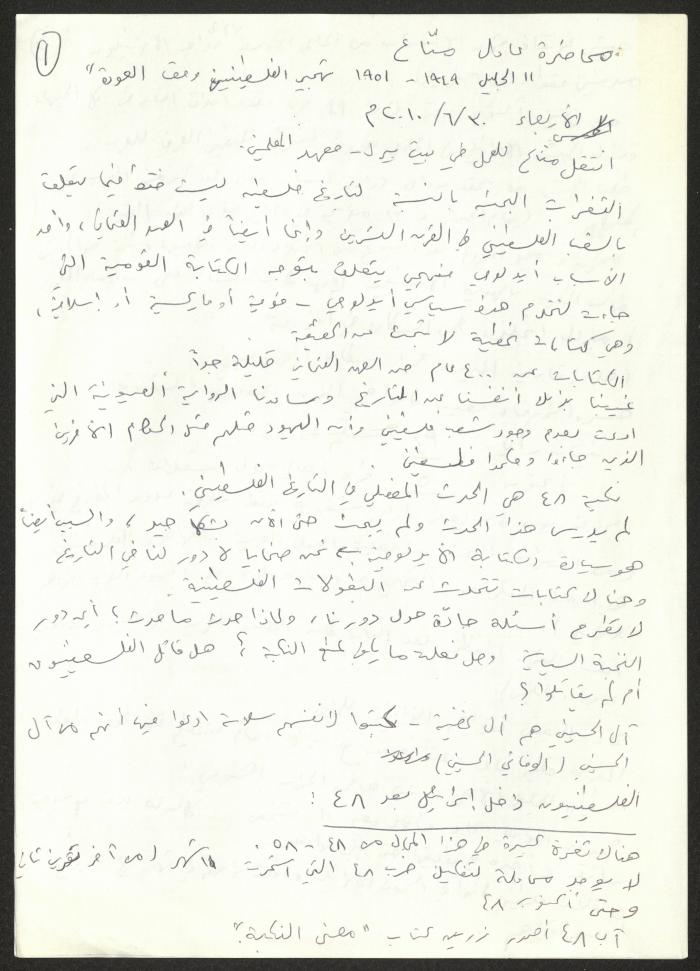 ①
محاضرة عادل منّاع
"الجليل ١٩٤٩ - ١٩٥١ تهجير الفلسطينيين ومنع العودة"
الأربعاء ٣٠/٦/٢٠١٠م
انتقل مناع للعمل في بيت بيرل - معهد المعلمين.
الثغرات البحثية بالنسبة لتاريخ فلسطين ليست فقط فيما يتعلق
بالشعب الفلسطيني في القرن العشرين وإنما أيضاً في العهد العثماني، وأحد
الأسباب أيدولوجي منهجي يتعلق بتوجه الكتابة القومية التي
جاءت لتخدم هدف سياسي أيدولوجي - قومية أو ماركسية أو إسلامية،
وهي كتابات نمطية لا تبحث عن الحقيقة
الكتابات عن ٤٠٠ عام من العهد العثماني قليلة جداً
غيبنا بذلك أنفسنا عن التاريخ وساعدنا الرواية الصهيونية التي
ادعت بعدم وجود شعب فلسطيني وأن اليهود مثلهم مثل الحكام الآخرين
الذين جاءوا وحكموا فلسطين.
نكبة ٤٨ هي الحدث المفصلي في التاريخ الفلسطيني.
لم يدرس هذا الحدث ولم يبحث حتى الآن بشكل جيد، والسبب أيضاً
هو سيادة الكتابة الأيدلوجية نحن ضحايا لا دور لنا في التاريخ
وهنالك كتابات تتحدث عن البطولات الفلسطينية.
لا تطرح أسئلة جادّة حول دورنا، ولماذا حدث ما حدث؟ أين دور
النخبة السياسية وهل فعلت ما يكفي لمنع النكبة؟ هل قاتل الفلسطينيون
أم لم يقاتلوا؟
آل الحسيني هم آل غضية - كتبوا لأنفسهم سلالة ادعوا فيها أنهم من آل
الحسيني (الوفائي الحسيني)
الفلسطينيون داخل إسرائيل بعد ٤٨:
هنالك ثغرة كبيرة في هذا المجال من ٤٨ - ٥٨.
لا يوجد محاولة لتفكيك حرب ٤٨ التي استمرت ١١ شهر (من آخر تشرين ثاني
وحتى أكتوبر ٤٨
آب ٤٨ أصدر زريق كتاب "معنى النكبة".